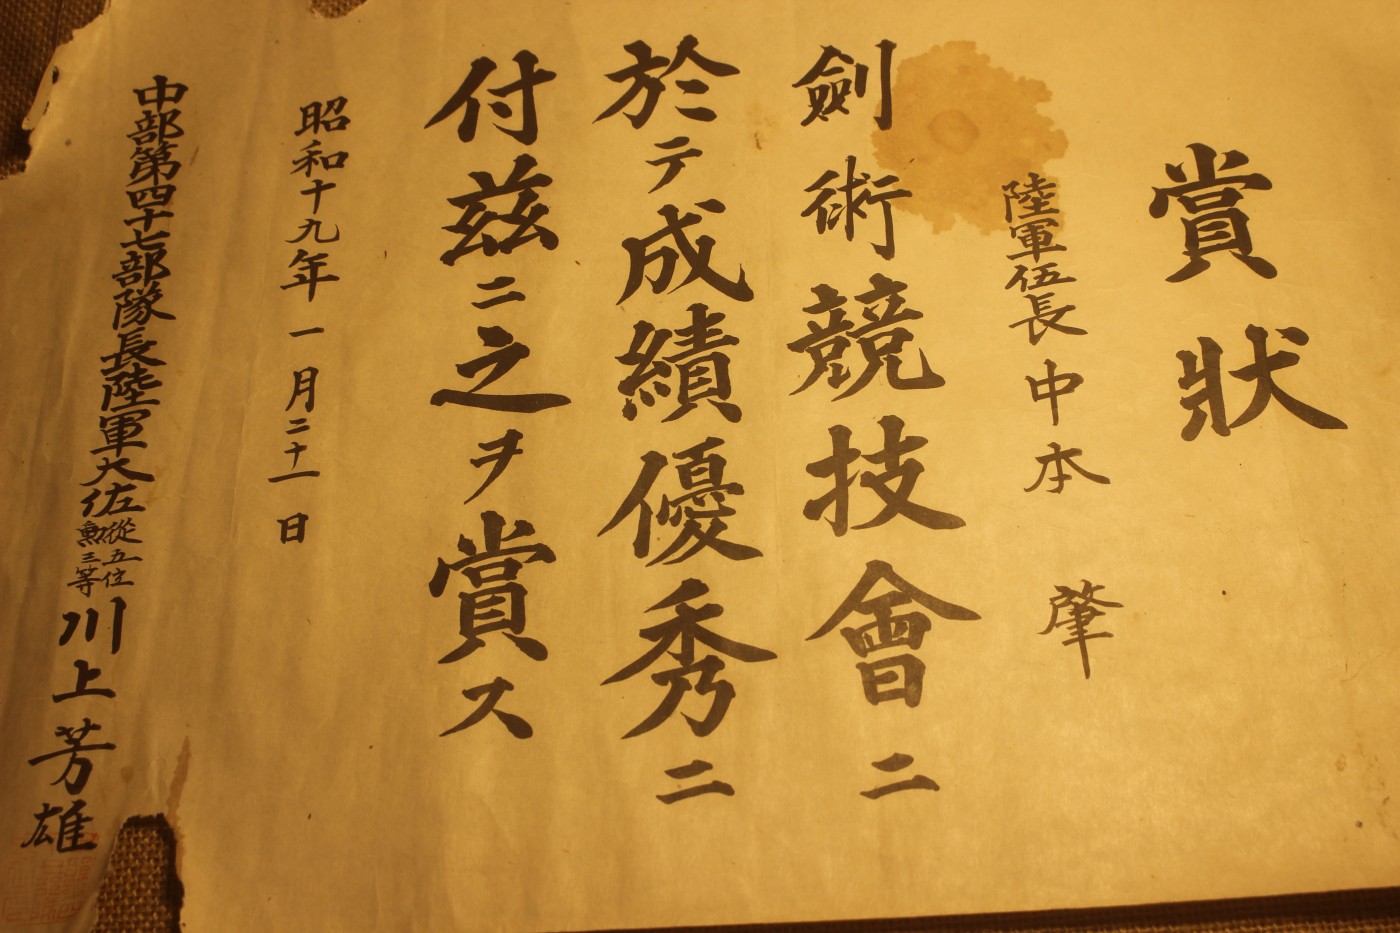 賞狀
陸軍伍長 中本 肇
劍術競技會ニ
於テ成績優秀ニ
付茲ニ之ヲ賞ス
昭和十九年一月二十一日
中部第四十七部隊長陸軍大佐 從五位 勲三等 川上芳雄